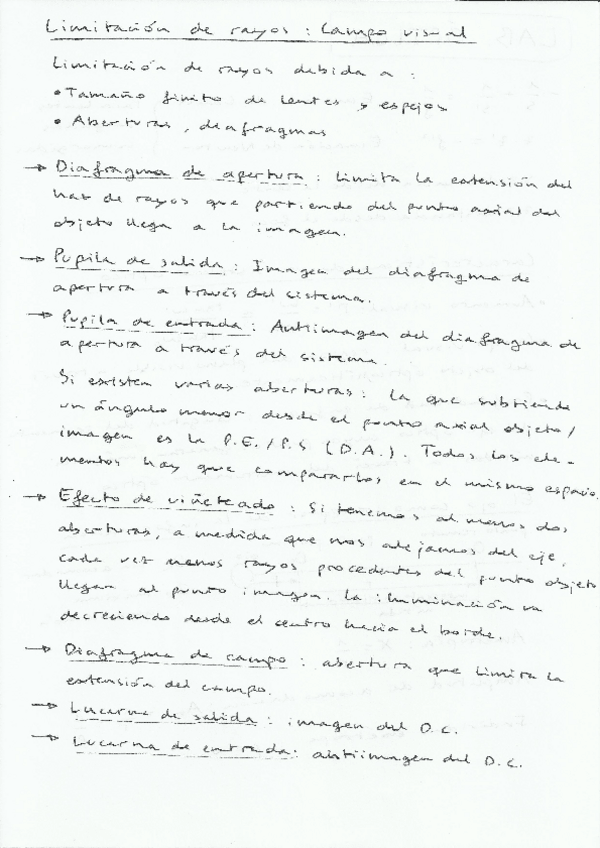 Limitación de rayos : Campo visual
Limitación de rayos debida a :
• Tamaño finito de lentes y espejos
• Aberturas, diafragmas
→ Diafragma de apertura : Limita la extensión del
haz de rayos que partiendo del punto axial del
objeto llega a la imagen.
→ Pupila de salida : Imagen del diafragma de
apertura a través del sistema.
→ Pupila de entrada : Antiimagen del diafragma de
apertura a través del sistema.
Si existen varias aberturas : la que subtiende
un ángulo menor desde el punto axial objeto/
imagen es la P.E./P.S (D.A.). Todos los ele-
mentos hay que compararlos en el mismo espacio.
→ Efecto de viñeteado : Si tenemos al menos dos
aberturas, a medida que nos alejamos del eje,
cada vez menos rayos procedentes del punto objeto
llegan al punto imagen. La iluminación va
decreciendo desde el centro hacia el borde.
→ Diafragma de campo : abertura que limita la
extensión del campo.
→ Lucarna de salida : imagen del D.C.
→ Lucarna de entrada : antiimagen del D.C.